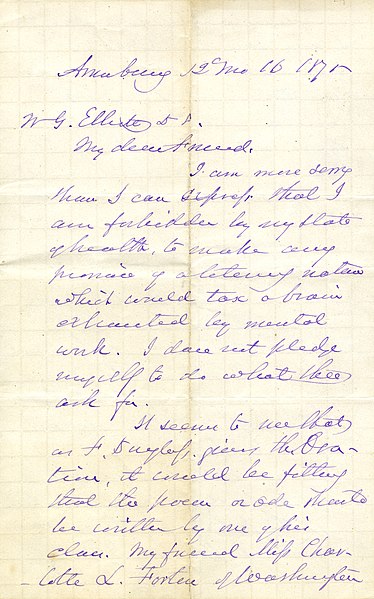 Amesbury 12 Mo 16 1875
W G. Elliot D D.
My dear friend,
I am more sorry
than I can express that I
am forbidden by my state
of health, to make any
promise of a literary nature
which would tax a brain
exhausted by mental
work. I dare not pledge
myself to do what thee
ask for.
It seems to me that
as F. Douglass, gives the Ora-
tion, it would be fitting
that the poem or ode should
be written by one of his
class. My friend Miss Char-
-lotte L. Forten of Washington